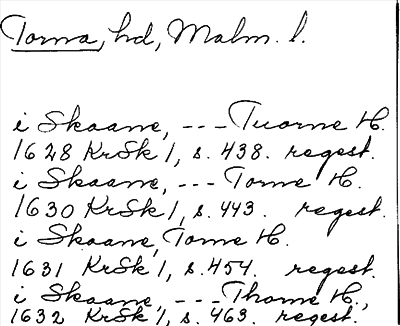 Torna, hd, Malm. l.
i Skaane, --- Tuorne H.
1628 KrSk 1, s. 438. regest.
i Skaane, --- Torne H.
1630 KrSk 1, s. 443. regest.
i Skaane, Torne H.
1631 KrSk 1, s. 454. regest.
i Skaane, --- Thorne H.,
1632 KrSk 1, s. 463. regest.